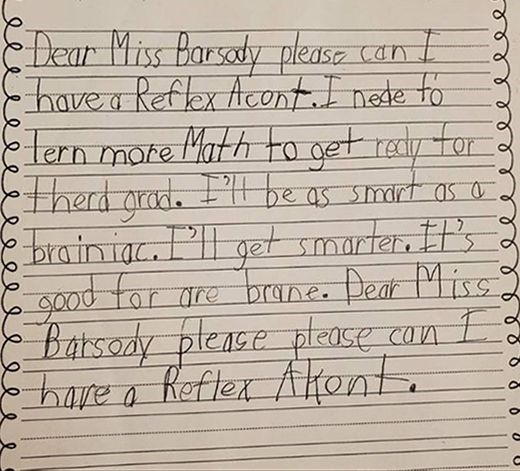 Dear Miss Barsody please can I
have a Reflex Acont. I nede to
lern more Math to get redy for
therd grad. I'll be as smart as a
brainiac. I'll get smarter. It's
good for are brane. Dear Miss
Barsody please please can I
have a Reflex Akont.